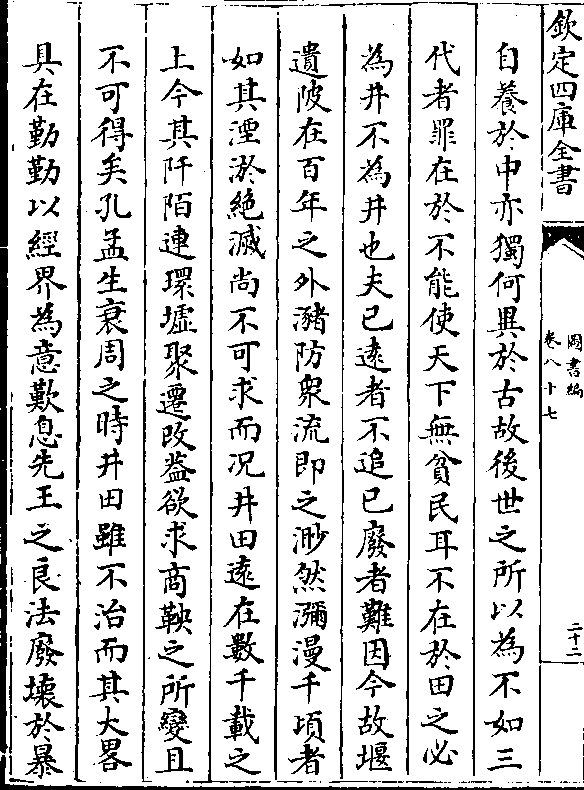 欽定四庫全書
圖書編
卷八十七
二十二
自養於中亦獨何異於古故後世之所以為不如三
代者罪在於不能使天下無貧民耳不在於田之必
為井不為井也夫已遠者不追已廢者難因今故堰
遺陂在百年之外瀦防衆流即之渺然瀰漫千頃者
如其湮淤絶滅尚不可求而况井田逺在數千載之
上今其阡陌連環墟聚遷改益欲求商鞅之所變且
不可得矣孔孟生衰周之時井田雖不治而其大畧
具在勤勤以經界為意歎息先王之良法廢壞於暴